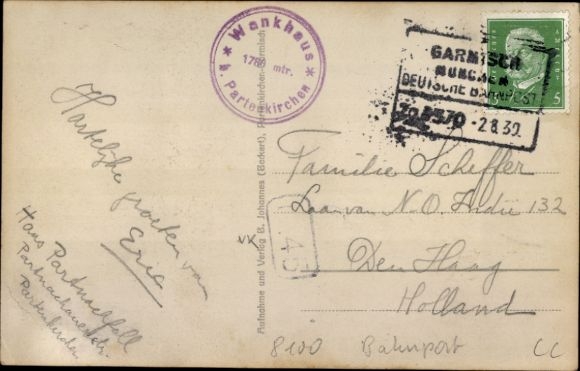 Hartelijke
groeten van
Eric
Haus Partnachfall
Partnachauenstr.
Partenkirchen
* Wankhaus *
1780 mtr.
b. Partenkirchen
Aufnahme und Verlag B. Johannes (Beckert), Partenkirchen-Garmisch
GARMISCH
MÜNCHEN
DEUTSCHE BAHNPOST
2.8.30.
5
Familie Scheffer
Laan van N.O. Indië 132
Den Haag
Holland
45
VK
8100 Bahnpost CC